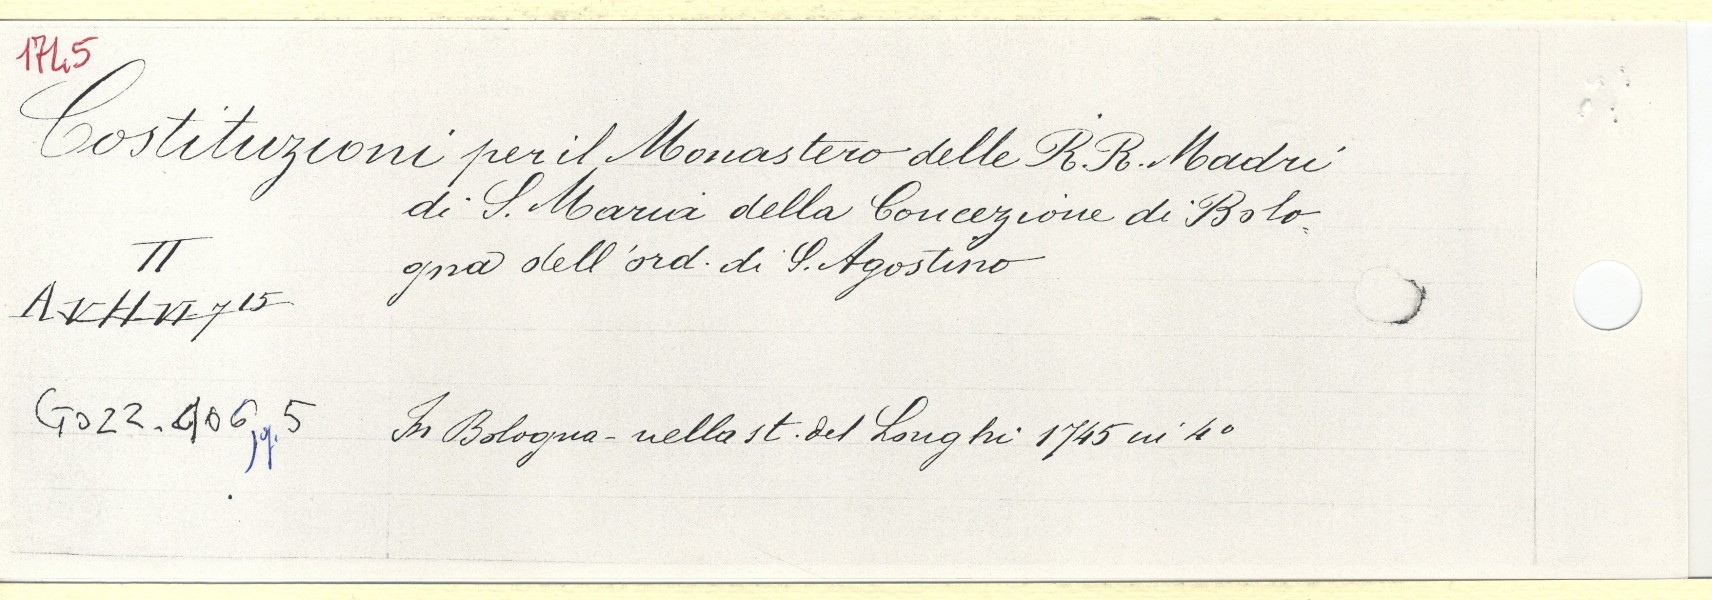 1745
Costituzioni per il Monastero delle R.R. Madri
di S. Maria della Concezione di Bolo=
gna dell'ord. di S. Agostino
II
A V H VI 7 15
Go 22. 406, 5
In Bologna - nella st. del Longhi 1745 in 4°